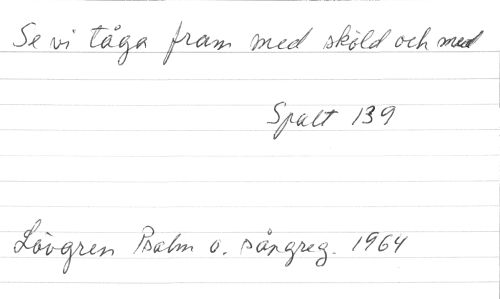 Se vi tåga fram med sköld och med
Spalt 139
Lövgren Psalm o. sångreg. 1964